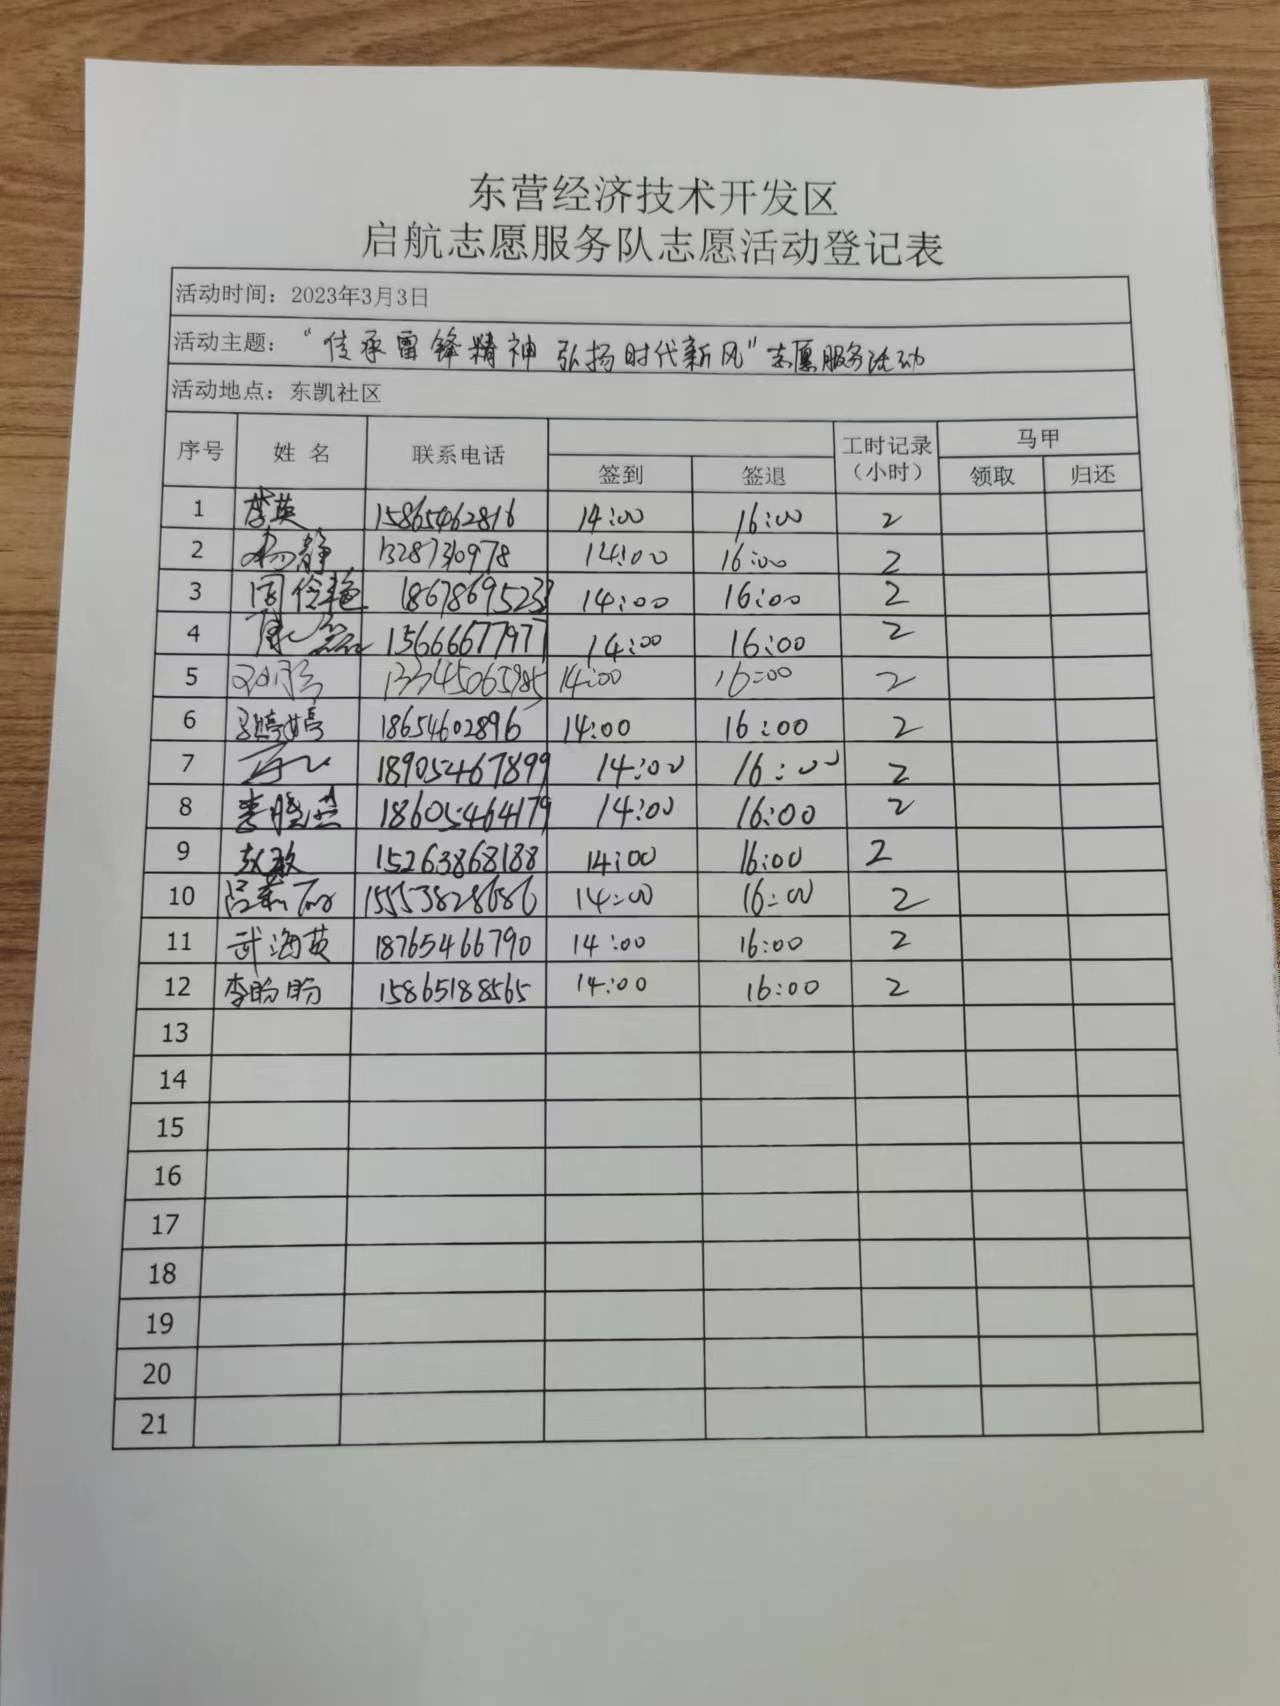 东营经济技术开发区
启航志愿服务队志愿活动登记表
活动时间：2023年3月3日
活动主题："传承雷锋精神 弘扬时代新风"志愿服务活动
活动地点：东凯社区
序号 姓名 联系电话 签到 签退 工时记录（小时） 马甲 领取 归还
1 李英 15865462816 14:00 16:00 2
2 杨静 14:00 16:00 2
3 18678695233 14:00 16:00 2
4 15666677977 14:00 16:00 2
5 14:00 16:00 2
6 18654602896 14:00 16:00 2
7 18905467899 14:00 16:00 2
8 李晓燕 18605464179 14:00 16:00 2
9 赵敏 15263868188 14:00 16:00 2
10 15553828686 14:00 16:00 2
11 武海英 18765466790 14:00 16:00 2
12 李盼盼 15865188565 14:00 16:00 2
13
14
15
16
17
18
19
20
21